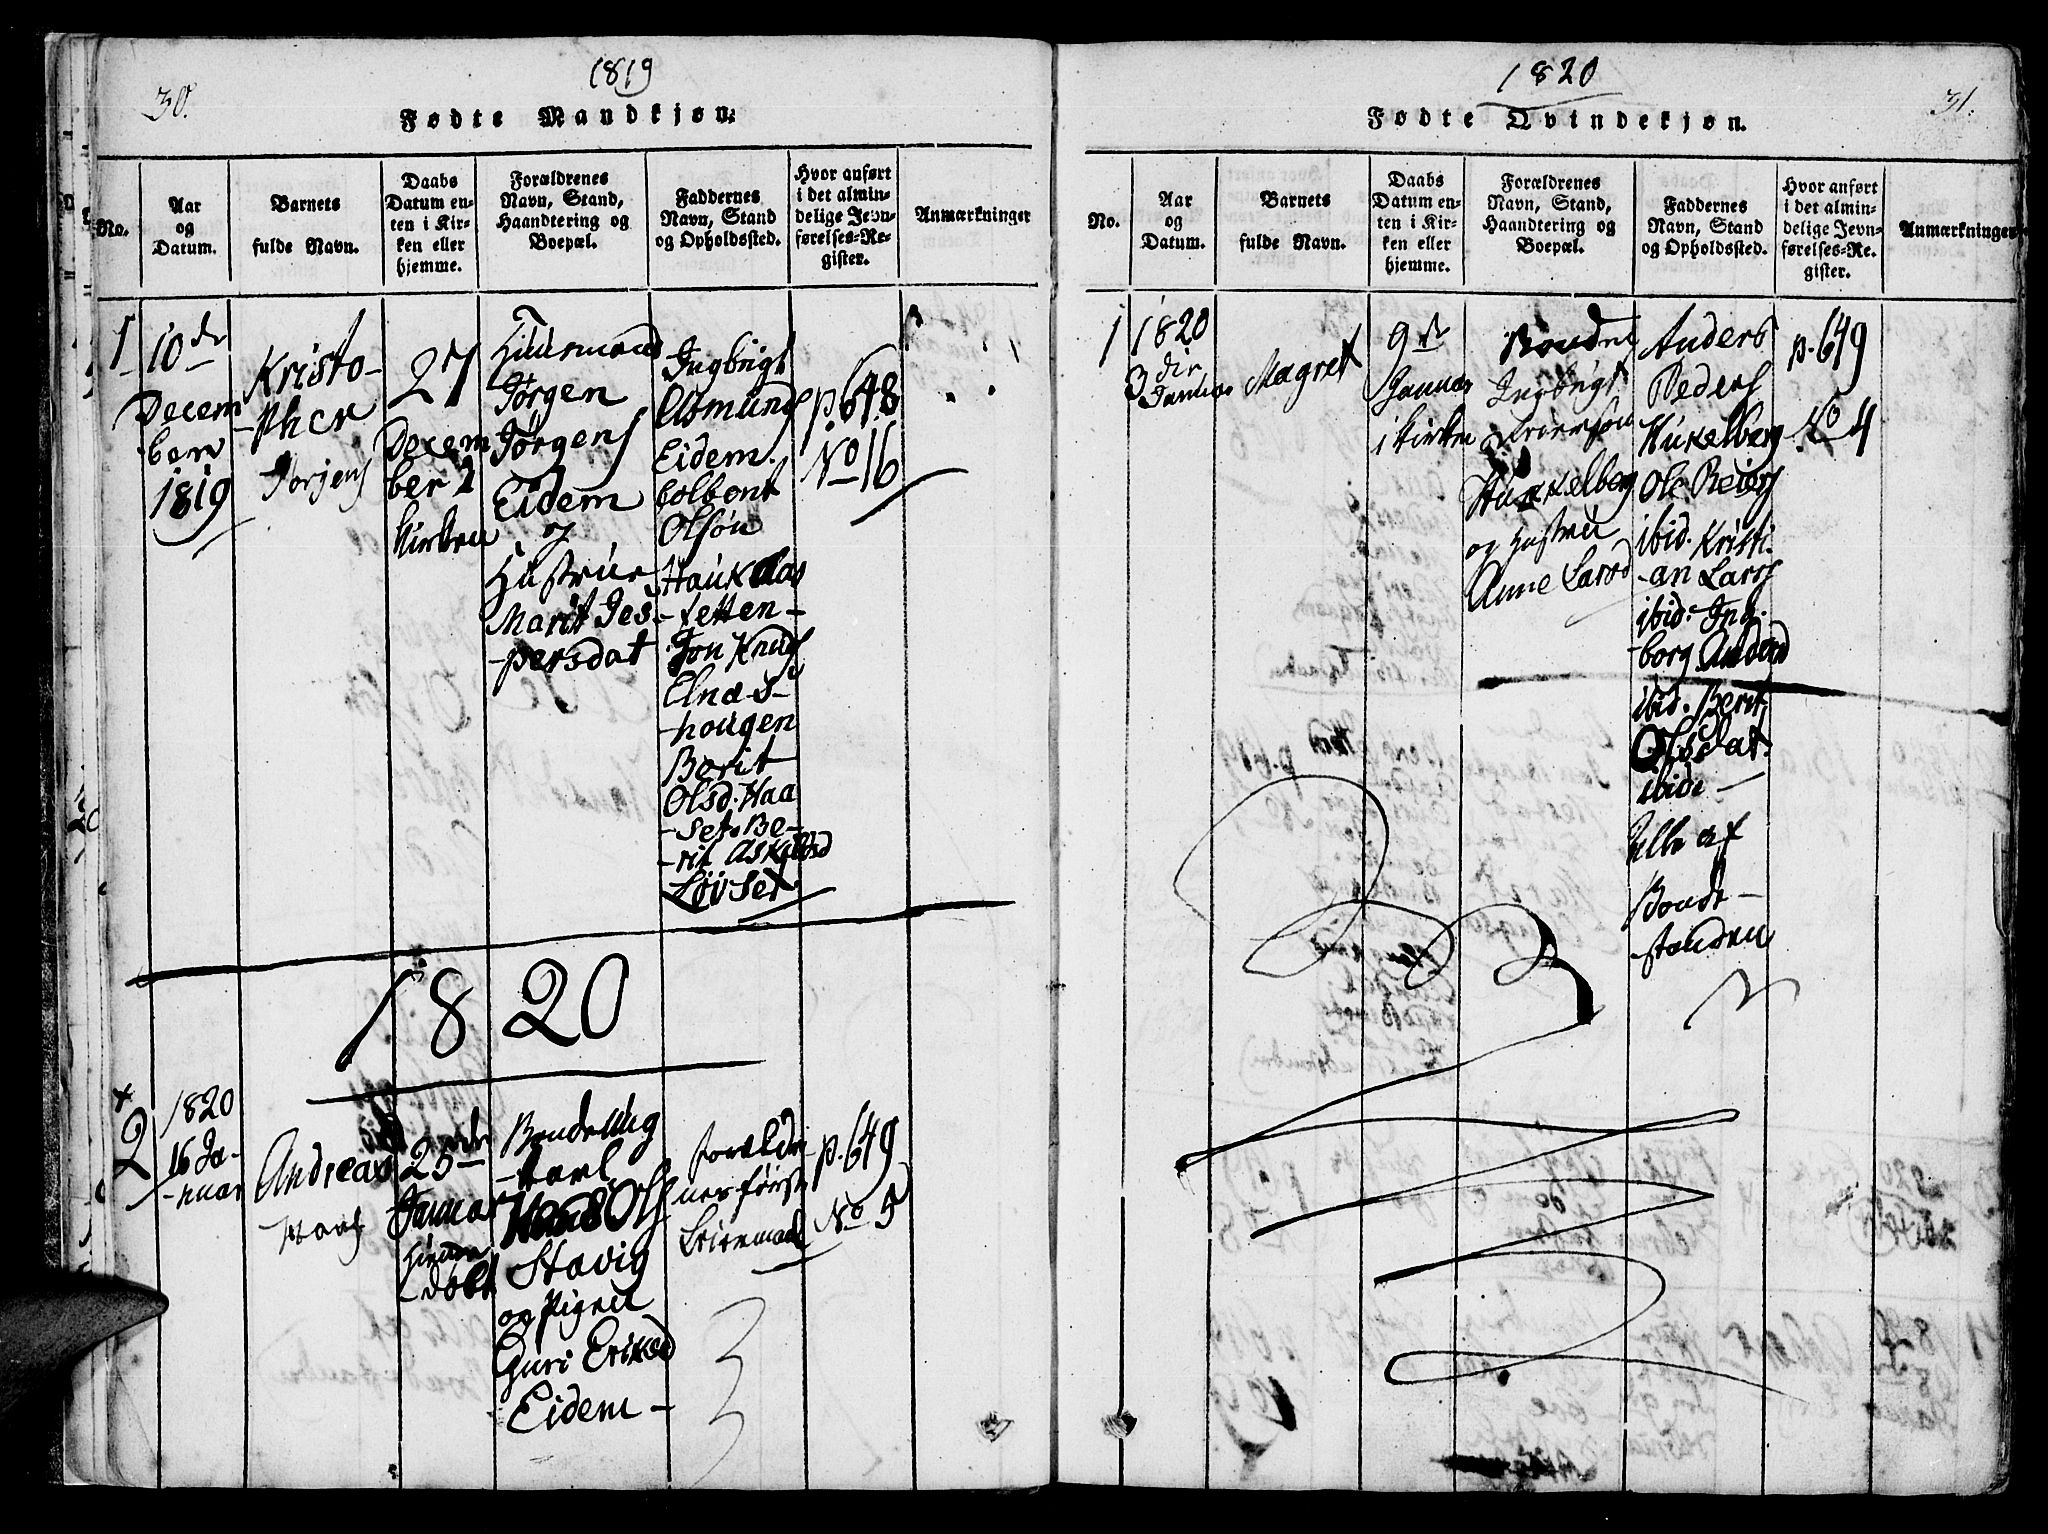 30.
1819
Fødte Mandkjøn.
No.
Aar
og
Datum.
Barnets
fulde Navn.
Daabs
Datum en-
ten i Kir-
ken eller
hjemme.
Forældrenes
Navn, Stand,
Haandtering og
Boepæl.
Faddernes
Navn, Stand
og Opholdssted.
Hvor anført
i det almin-
delige Jevn-
førelses-Re-
gister.
Anmærkninger
1
10de
Decem
ber
1819
Kristo-
-pher
Jorgens
27
Decem
ber I
Kirken
Huusmand
Jørgen
Jørgens
Eidem
og
Hustrue
Marit Jes-
-persdat
Ingbrigt
Olsmunds
Eidem.
Colbent
Olsøn
Haukaas
-tetten-
Jon Knuds
Elnæs-
-hougen
Berit
Olsd. Haa
-set. Be-
-rit Askilsd
Løvset.
p. 648
No 16
1820
2
1820
16 Ja-
-nuar
Andreas
25de
Januar
Hiemme
døbt
Bonde Ung
-karl
Hans Ols
Stavig
og Pigen
Guri Eriksd
Eidem-
foreldre-
nes første
Leiermaal
p. 649
No 5
1820
31.
Fødte Qvindekjøn.
No.
Aar
og
Datum.
Barnets
fulde Navn.
Daabs
Datum en-
ten i Kir-
ken eller
hjemme.
Forældrenes
Navn, Stand,
Haandtering og
Boepæl.
Faddernes
Navn, Stand
og Opholdssted.
Hvor anført
i det almin-
delige Jevn-
førelses-Re-
gister.
Anmærkninger
1
1820
3die
Januar
Magret
9de
Januar
i Kirken
Bonden
Ingbrigt
Hukkelberg
og Hustru
Anne Larsd
Anders
Peders
Hukelberg
Ole Reiers
ibid. Kristi-
-an Lars
ibid. Ing-
-borg Andersd
ibid. Berit
Olsdat.
ibide-
alle af
Bonde-
standen
p. 649
No 4